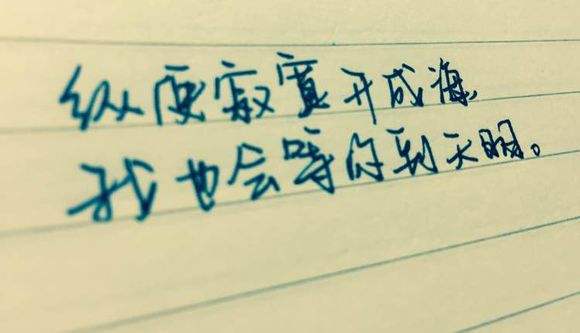 纵使寂寞开成海，
我也会等你到天明。